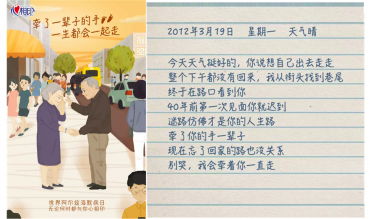 心相印
牵了一辈子的手
一生都会一起走
世界阿尔兹海默病日
无论何时都与你心相印
2012年3月19日 星期一 天气晴
今天天气挺好的,你说想自己出去走走
整个下午都没有回来,我从街头找到巷尾
终于在路口看到你
40年前第一次见面你就迟到
迷路仿佛才是你的人生路
牵了你的手一辈子
现在忘了回家的路也没关系
别哭,我会牵着你一直走